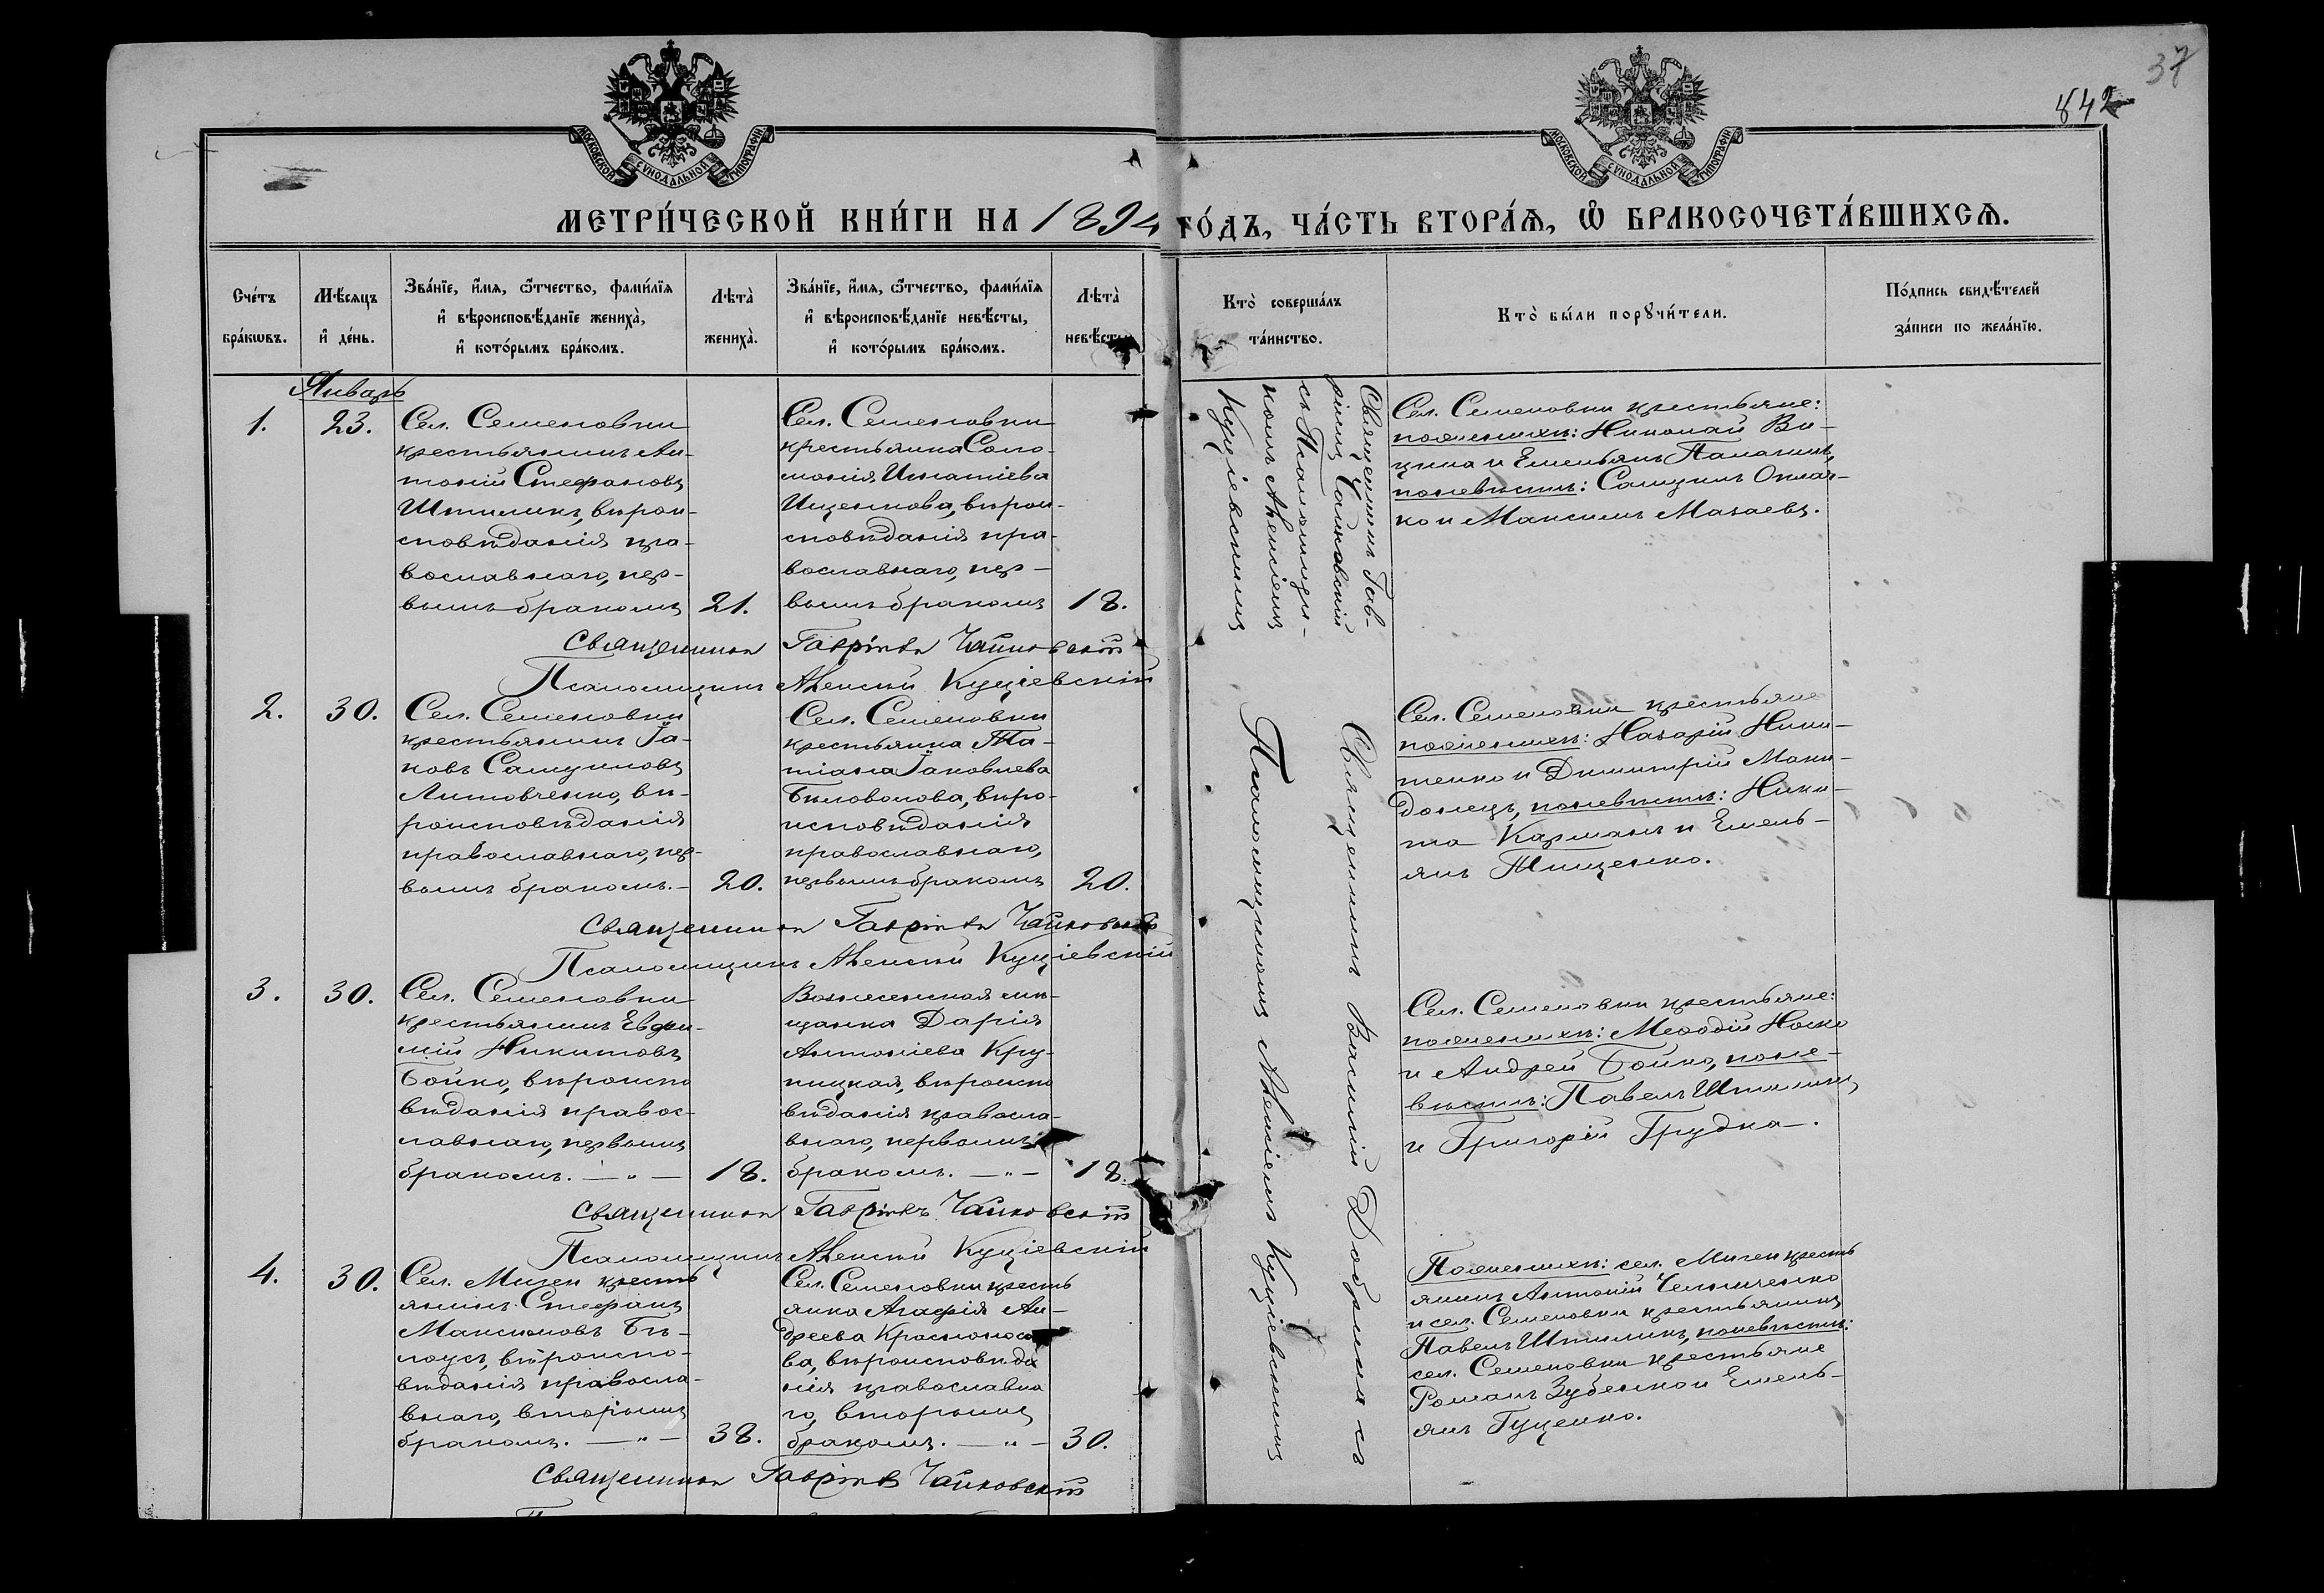 37
842
МОСКОВСКОЙ СѴНОДАЛЬНОЙ ТИПОГРАФІИ
МОСКОВСКОЙ СѴНОДАЛЬНОЙ ТИПОГРАФІИ
МЕТРИ́ЧЕСКОЙ КНИ́ГИ НА 1894 ГО́ДЪ, ЧА́СТЬ ВТОРА́Ѧ, Ѽ БРАКОСОЧЕТА́ВШИХСѦ.
Сче́тъ бра́кѡвъ.
Мѣ́сяцъ и҆ де́нь.
Зва́нїе, и҆́мя, ѻ҆́тчество, фами́лїя
и҆ вѣроисповѣ́данїе жениха̀,
и҆ кото́рымъ бра́комъ.
Лѣта̀ жениха̀.
Зва́нїе, и҆́мя, ѻ҆́тчество, фами́лїя
и҆ вѣроисповѣ́данїе невѣ́сты,
и҆ кото́рымъ бра́комъ.
Лѣта̀ невѣ́сты
Кто̀ соверша́лъ
та́инство.
Кто̀ бы́ли порꙋчи́тели.
По́дпись свидѣ́телей
за́писи по жела́нїю.
Январь
1.
23.
Сел. Семеновки
крестьянинъ Ан-
тоній Стефановъ
Штиликъ, вѣрои-
сповѣданія пра-
вославнаго, пер-
вымъ бракомъ
21.
Сел. Семеновки
крестьянка Соло-
монія Игнатіева
Ищенкова, вѣрои-
сповѣданія пра-
вославнаго, пер-
вымъ бракомъ
18.
Священникъ Гав-
ріилъ Чайковскій
съ Псаломщи-
комъ Алексіемъ
Куціевскимъ
Сел. Семеновки крестьяне:
по женихѣ: Николай
и Емельянъ
по невѣстѣ:
и Максимъ Мазаевъ.
Священникъ Гавріилъ Чайковскій
Псаломщикъ Алексѣй Куціевскій
2.
30.
Сел. Семеновки
крестьянинъ Іа-
ковъ Самуиловъ
Литовченко, вѣ-
роисповѣданія
православнаго, пер-
вымъ бракомъ.-
20.
Сел. Семеновки
крестьянка Та-
тіана Іаковлева
Бѣловолова, вѣро-
исповѣданія
православнаго,
первымъ бракомъ
20.
Священникъ Василій Добрина съ
Псаломщикомъ Алексіемъ Куціевскимъ
Сел. Семеновки крестьяне
по женихѣ: Назарій Ники-
тенко и Димитрій Маки-
донецъ, по невѣстѣ: Ники-
та Карманъ и Емель-
янъ Тищенко.
Священникъ Гавріилъ Чайковскій
Псаломщикъ Алексѣй Куціевскій
3.
30.
Сел. Семеновки
крестьянинъ Евфи-
мій Никитовъ
Бойко, вѣроиспо
вѣданія правос-
лавнаго, первымъ
бракомъ. — " —
18.
Вознесенская мѣ-
щанка Дарія
Антоніева Кру-
пицкая, вѣроиспо
вѣданія правосла-
внаго, первымъ
бракомъ. — " —
18.
Сел. Семеновки крестьяне:
по женихѣ: Меѳодій Носко
и Андрей Бойко, по не-
вѣстѣ: Павелъ Штиликъ
и Григорій Грудка —.
Священникъ Гавріилъ Чайковскій
Псаломщикъ Алексѣй Куціевскій
4.
30.
Сел. Мигеи кресть
янинъ Стефанъ
Максимовъ Бѣ-
лоусъ, вѣроиспо-
вѣданія правосла-
внаго, вторымъ
бракомъ. — " —
38.
Сел. Семеновки кресть
янка Агафія Ан-
дреева Красноносо
ва, вѣроисповѣда
нія православна
го, вторымъ
бракомъ. — " —
30.
По женихѣ: сел. Мигеи кресть
янинъ Антоній
и сел. Семеновки крестьянинъ
Павелъ Штиликъ, по невѣстѣ:
сел. Семеновки крестьяне
Романъ Зубенко и Емель-
янъ Гуценко.
Священникъ Гавріилъ Чайковскій